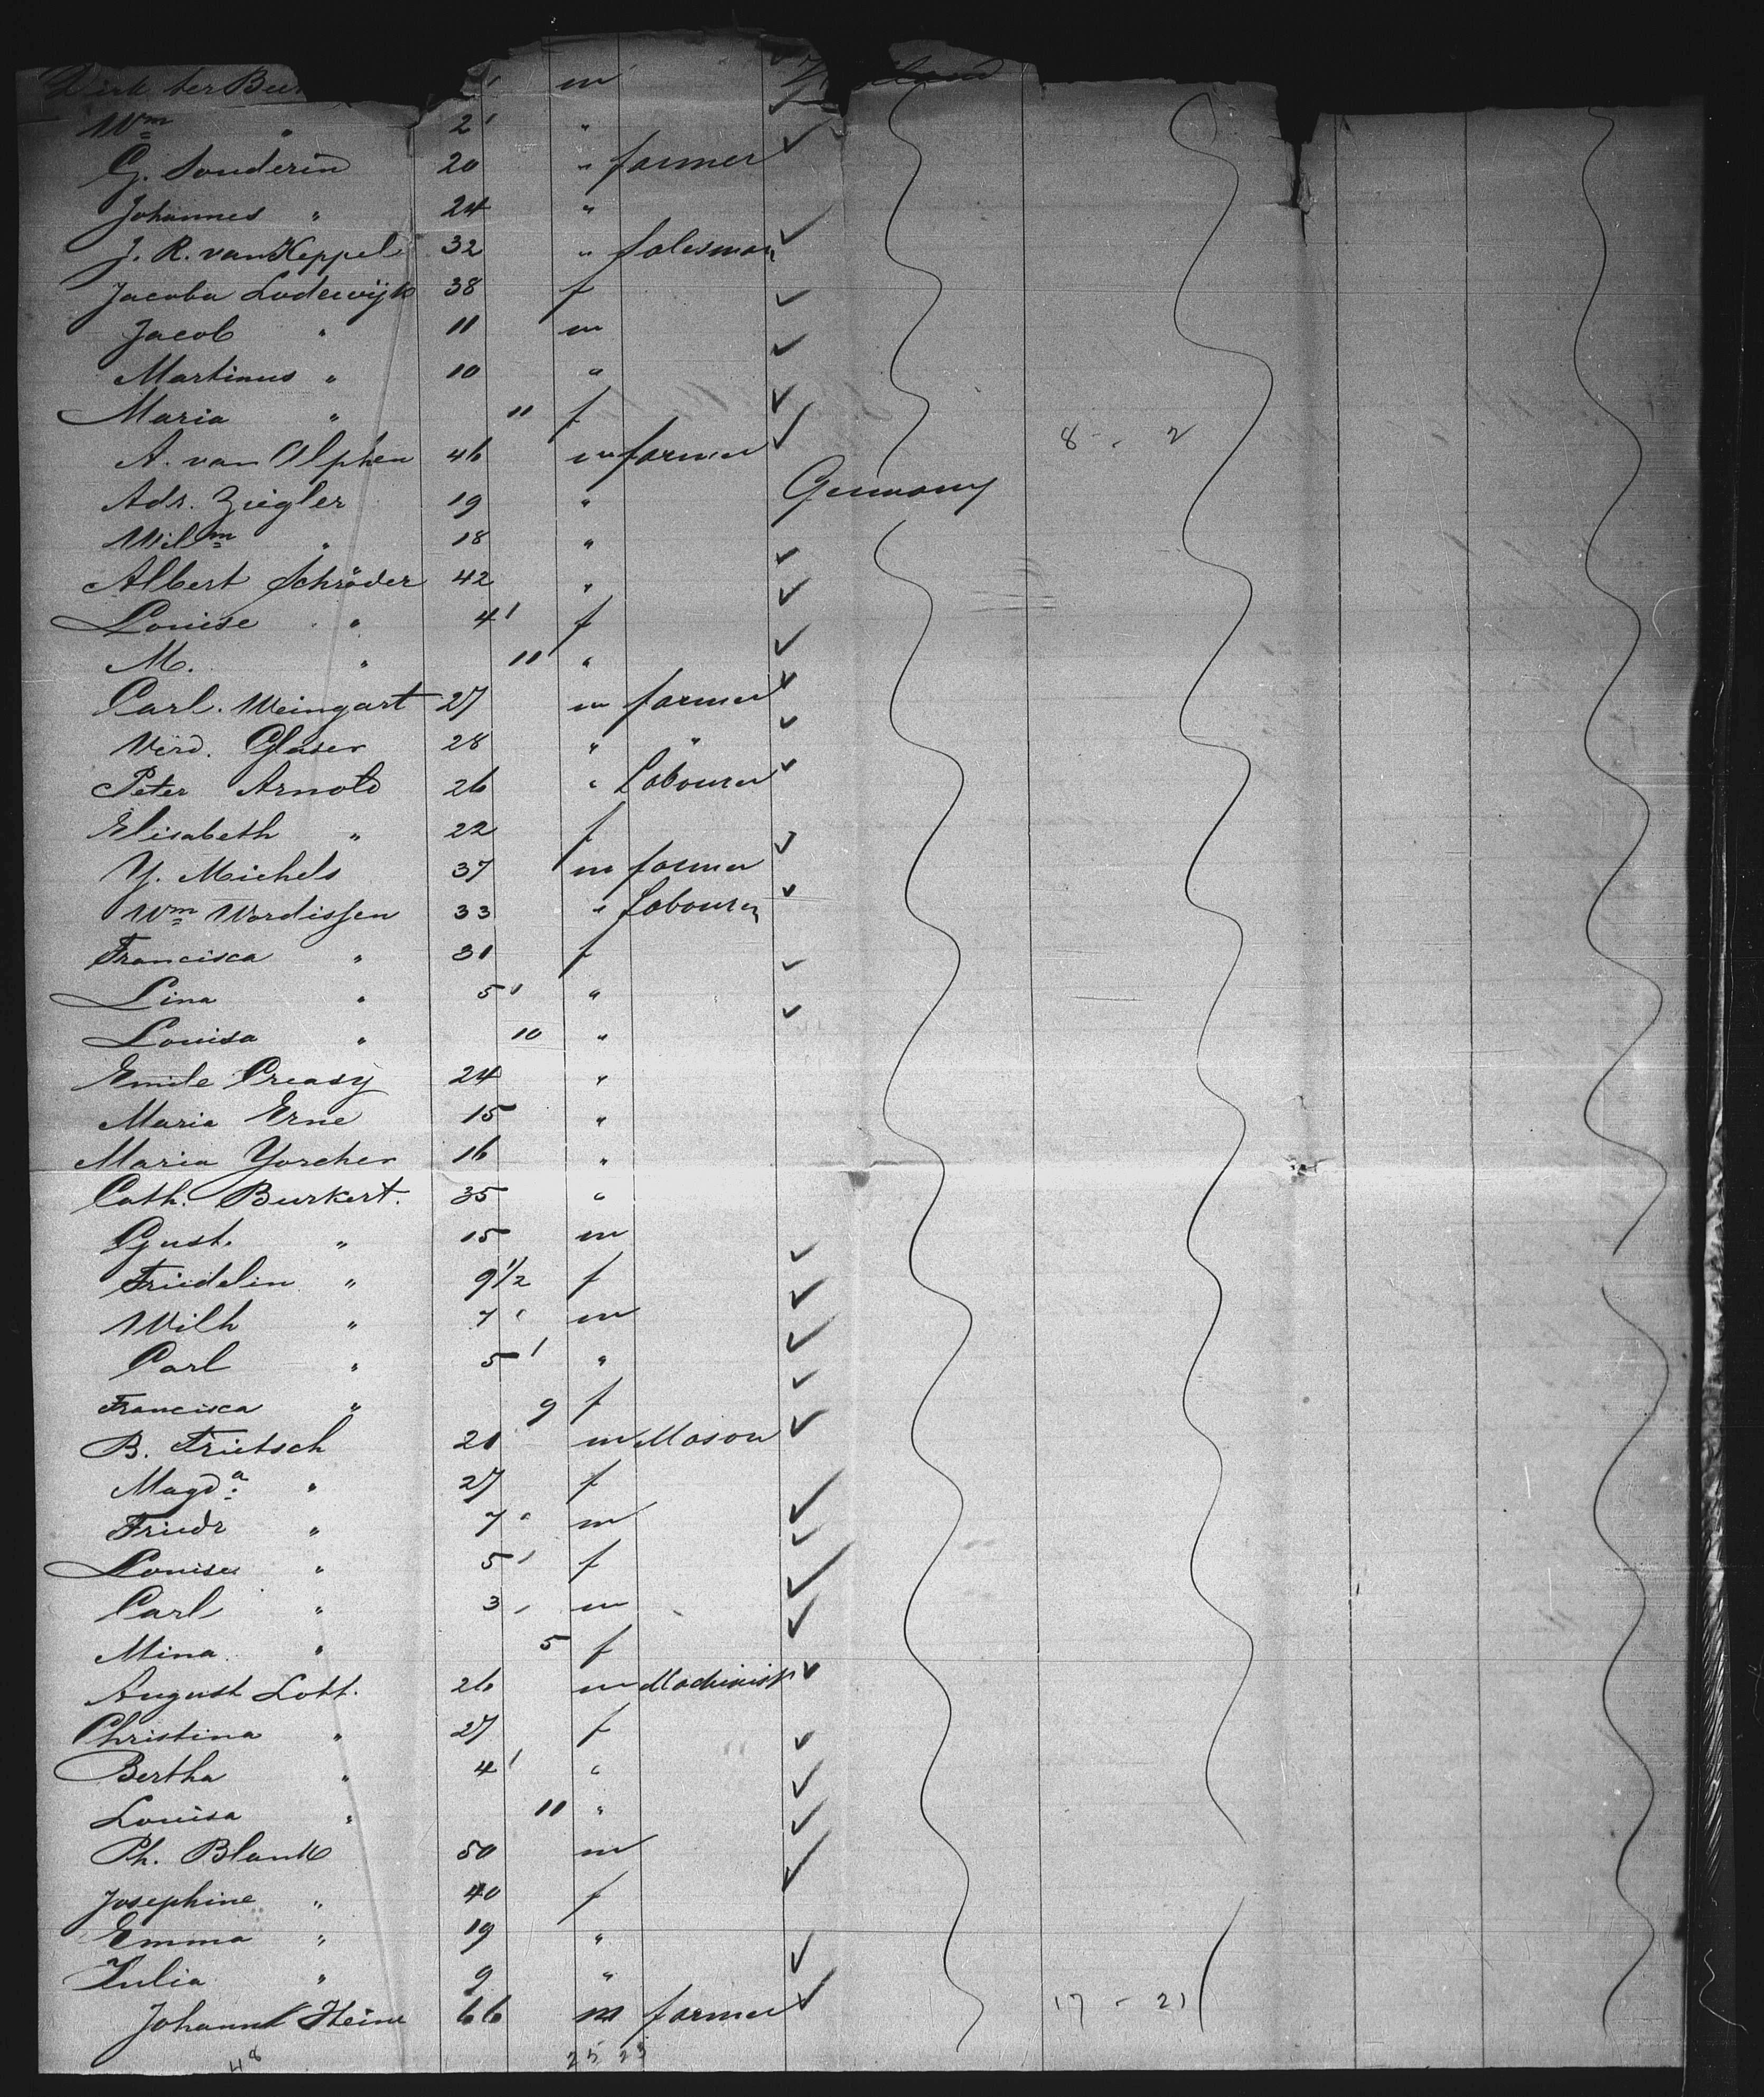 Dirk ter m
Wm " 2 "
G. Sonderin 20 " farmer
Johannes " 24 "
J. R. van Keppel 32 " Salesman
Jacoba Lodewijk 38 f
Jacob " 11 m
Martinus " 10 "
Maria " 11 f
A. van Alphen 46 m farmer 8 - 2
Adr. Ziegler 19 " Germany
Wilm " 18 "
Albert Schröder 42 "
Louise " 4 f
M. " 11 "
Carl. Weingart 27 m farmer
Glaser 28 " "
Peter Arnold 26 " Labourer
Elisabeth " 22 f
Y. Michels 37 m farmer
Wm Wordissen 33 " Labourer
Francisca " 31 f
Lina " 5 "
Louisa " 10 "
Emile Creasy 24 "
Maria Erne 15 "
Maria Yorcher 16 "
Cath. Burkert. 35 "
Gust. " 15 m
Friedelin " 9 1/2 f
Wilh " 7 m
Carl " 5 "
Francisca " 9 f
B. Frietsch 21 m Mason
Magda " 27 f
Friedr " 7 m
Louise " 5 f
Carl " 3 m
Mina " 5 f
August Lott. 26 m Machinist
Christina " 27 f
Bertha " 4 "
Louisa " 11 "
Ph. Blank 50 m
Josephine " 40 f
Emma " 19 "
Julia " 9 "
Johann Heine 66 m farmer 17 - 21
48 25 23